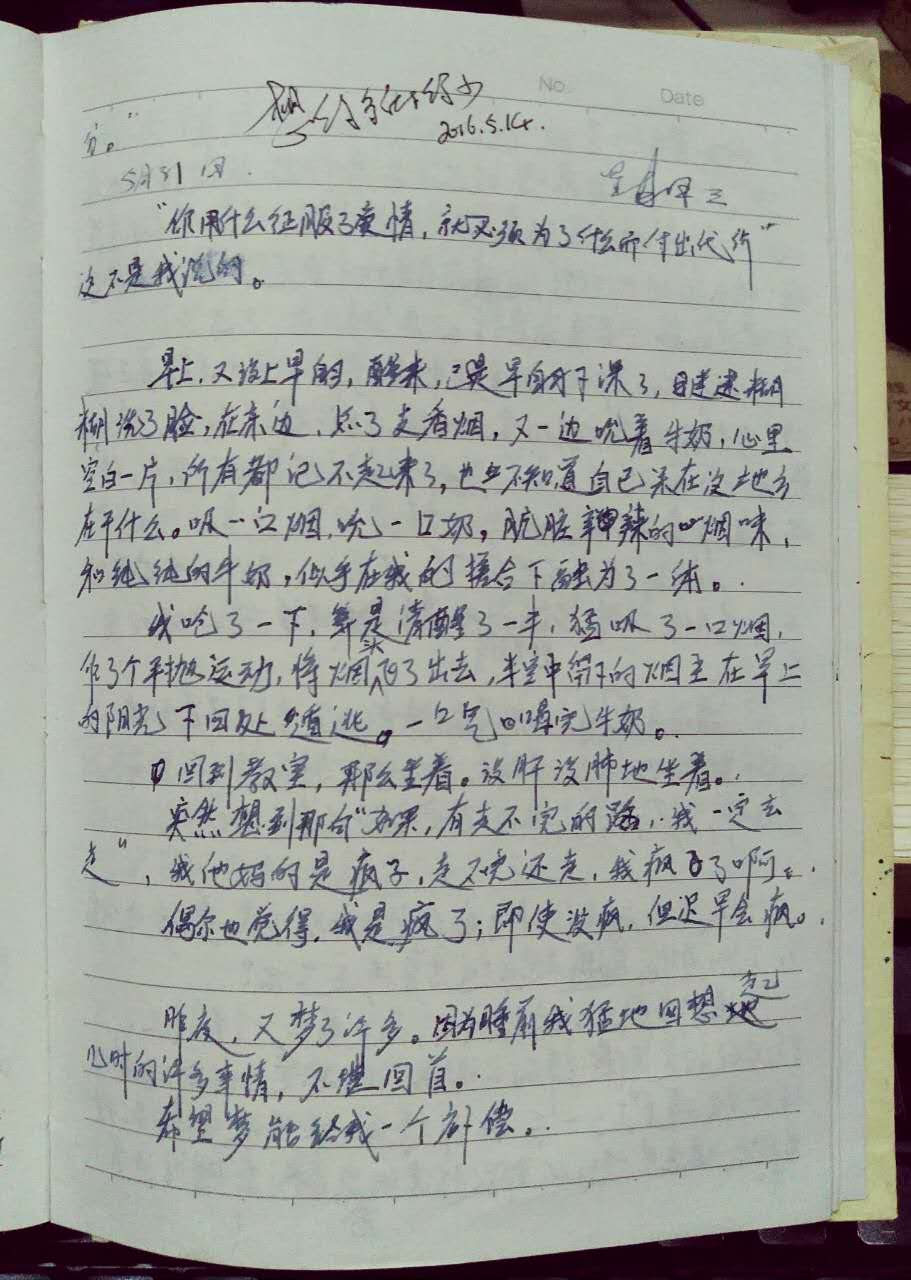 No
Date
2016.5.14.
分。"
5月31日.
星期三
"你用什么征服了爱情，就必须为了什么而付出代价"
这不是我说的。
早上，又没上早自，醒来，已是早自习下课了，迷迷糊
糊洗了脸，在床边，点了支香烟，又一边吮着牛奶，心里
空白一片，所有都记不起来了，也不知道自己呆在这地方
在干什么。吸一口烟，吮一口奶。肮脏辛辣的烟味，
和纯纯的牛奶，似乎在我的撮合下融为了一体。.
我呛了一下，算是清醒了一半，猛吸了一口烟，
作了个平抛运动，将烟头飞了出去，半空中留下的烟圭在早上
的阳光下四处遁逃。一口气喝完牛奶。.
回到教室，那么坐着。没肝没肺地坐着。.
突然想到那句"如果，有走不完的路，我一定去
走"，我他妈的是疯子，走不完还走，我疯了啊。.
偶尔也觉得，我是疯了；即使没疯，但迟早会疯。.
昨夜，又梦了许多。因为睡前我猛地回想起
儿时的许多事情，不堪回首。.
希望梦能给我一个补偿。.